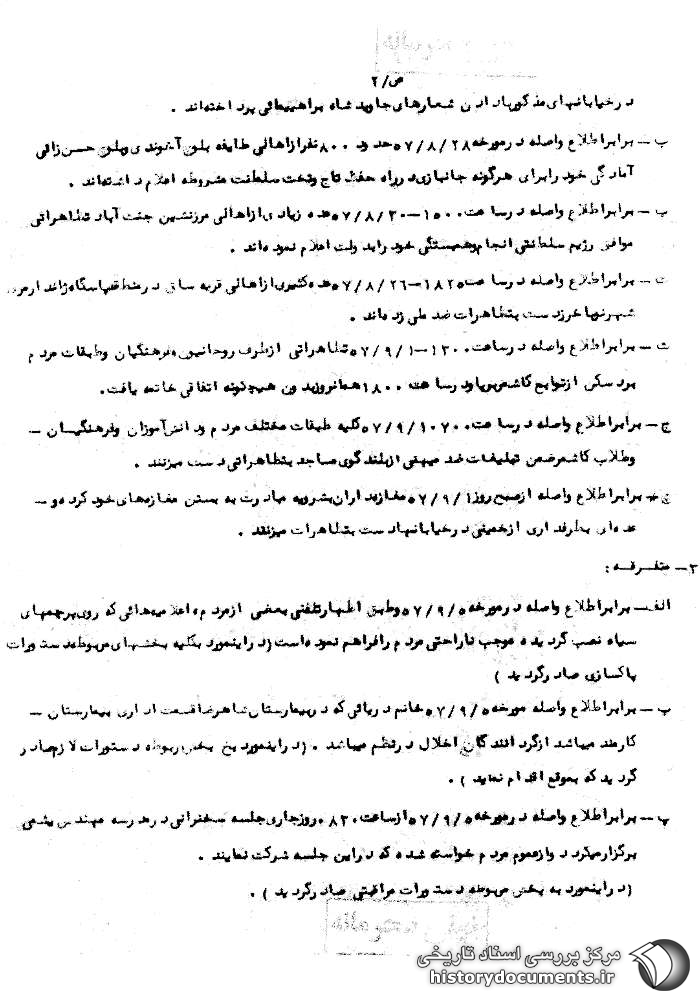 ص/۲
در خیابانهای مذکور بادادن شعارهای جاوید شاه براهپیمائی پرداخته‌اند .
ب — برابر اطلاع واصله در مورخه ۵۷/۸/۲۸ حدود ۸۰۰ نفر از اهالی طایفه بلوچ آخوندی و بلوچ حسن زائی
آمادگی خود را برای هرگونه جانبازی در راه حفظ تاج وتخت سلطنت مشروطه اعلام داشته‌اند .
پ — برابر اطلاع واصله در ساعت ۱۵۰۰—۵۷/۸/۳۰ عده زیادی از اهالی مرزنشین جنت آباد تظاهراتی
موافق رژیم سلطنتی انجام وهمبستگی خود را بدولت اعلام نموده‌اند .
ت — برابر اطلاع واصله در ساعت ۱۸۲۵—۵۷/۸/۲۶ عده کثیری از اهالی قریه ساق در منطقه پاسگاه ژاندارمری
شهرنو باخرز دست بتظاهرات ضد ملی زده‌اند .
ث — برابر اطلاع واصله در ساعت ۱۳۰۰—۵۷/۹/۱ تظاهراتی از طرف روحانیون، فرهنگیان وطبقات مردم
بردسکن از توابع کاشمر برپا ودر ساعت ۱۸۰۰ همانروز بدون هیچگونه اتفاقی خاتمه یافت.
ج — برابر اطلاع واصله در ساعت ۰۷۰۰ ۵۷/۹/۱ کلیه طبقات مختلف مردم ودانش‌آموزان وفرهنگیان —
وطلاب کاشمر ضمن تبلیغات ضد میهنی از بلندگوی مساجد بتظاهراتی دست میزنند .
چ — برابر اطلاع واصله از صبح روز ۵۷/۹/۱ مغازه‌داران بشرویه مبادرت به بستن مغازه‌های خود کرده و —
عده‌ای بطرفداری از خمینی در خیابانها دست بتظاهرات میزنند .
۳— متفرقه :
الف — برابر اطلاع واصله در مورخه ۵۷/۹/۵ وطبق اظهار تلفنی بعضی از مردم، اعلامیه‌هائی که روی پرچمهای
سیاه نصب گردیده موجب ناراحتی مردم را فراهم نموده است (در اینمورد بکلیه بخشهای مربوطه دستورات
پاکسازی صادر گردید )
ب — برابر اطلاع واصله مورخه ۵۷/۹/۵ خانم دریائی که در بیمارستان شاهرضا قسمت اداری بیمارستان —
کارمند میباشد از گردانندگان اخلال در نظم میباشد . (در اینمورد به بخش مربوطه دستورات لازم صادر
گردید که بموقع اقدام نماید ) .
پ — برابر اطلاع واصله در مورخه ۵۷/۹/۵ از ساعت ۰۸۳۰ روز جاری جلسه سخنرانی در مدرسه مهندس
برگزار میگردد واز عموم مردم خواسته شده که در این جلسه شرکت نمایند .
(در اینمورد به بخش مربوطه دستورات مراقبتی صادر گردید ) .
مرکز بررسی اسناد تاریخی
historydocuments.ir